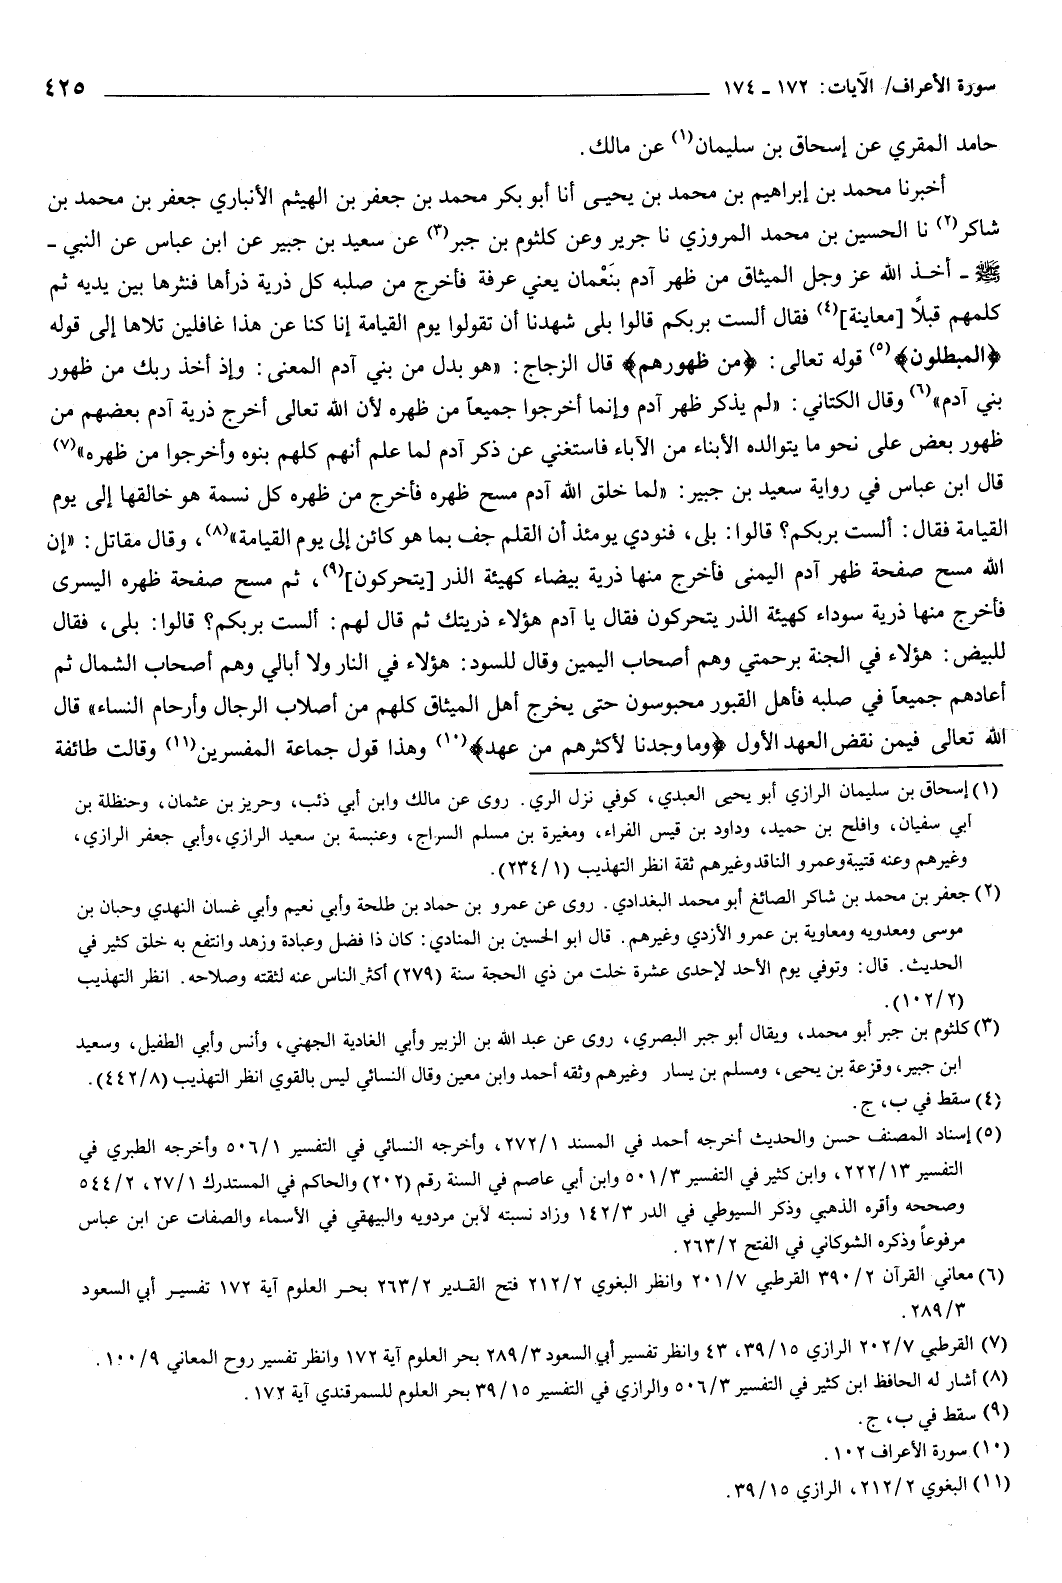 سورة الأعراف/ الآيات: ١٧٢ ـ ١٧٤ ٤٢٥
حامد المقري عن إسحاق بن سليمان(١) عن مالك.
أخبرنا محمد بن إبراهيم بن محمد بن يحيى أنا أبو بكر محمد بن جعفر بن الهيثم الأنباري جعفر بن محمد بن
شاكر(٢) نا الحسين بن محمد المروزي نا جرير وعن كلثوم بن جبر(٣) عن سعيد بن جبير عن ابن عباس عن النبي ـ
ﷺ ـ أخذ الله عز وجل الميثاق من ظهر آدم بنَعْمان يعني عرفة فأخرج من صلبه كل ذرية ذرأها فنثرها بين يديه ثم
كلمهم قبلاً [معاينة](٤) فقال ألست بربكم قالوا بلى شهدنا أن تقولوا يوم القيامة إنا كنا عن هذا غافلين تلاها إلى قوله
﴿المبطلون﴾(٥) قوله تعالى: ﴿من ظهورهم﴾ قال الزجاج: «هو بدل من بني آدم المعنى: وإذ أخذ ربك من ظهور
بني آدم»(٦) وقال الكتاني: «لم يذكر ظهر آدم وإنما أخرجوا جميعاً من ظهره لأن الله تعالى أخرج ذرية آدم بعضهم من
ظهور بعض على نحو ما يتوالده الأبناء من الآباء فاستغني عن ذكر آدم لما علم أنهم كلهم بنوه وأخرجوا من ظهره»(٧)
قال ابن عباس في رواية سعيد بن جبير: «لما خلق الله آدم مسح ظهره فأخرج من ظهره كل نسمة هو خالقها إلى يوم
القيامة فقال: ألست بربكم؟ قالوا: بلى، فنودي يومئذ أن القلم جف بما هو كائن إلى يوم القيامة»(٨)، وقال مقاتل: «إن
الله مسح صفحة ظهر آدم اليمنى فأخرج منها ذرية بيضاء كهيئة الذر [يتحركون](٩)، ثم مسح صفحة ظهره اليسرى
فأخرج منها ذرية سوداء كهيئة الذر يتحركون فقال يا آدم هؤلاء ذريتك ثم قال لهم: ألست بربكم؟ قالوا: بلى، فقال
للبيض: هؤلاء في الجنة برحمتي وهم أصحاب اليمين وقال للسود: هؤلاء في النار ولا أبالي وهم أصحاب الشمال ثم
أعادهم جميعاً في صلبه فأهل القبور محبوسون حتى يخرج أهل الميثاق كلهم من أصلاب الرجال وأرحام النساء» قال
الله تعالى فيمن نقض العهد الأول ﴿وما وجدنا لأكثرهم من عهد﴾(١٠) وهذا قول جماعة المفسرين(١١) وقالت طائفة
(١) إسحاق بن سليمان الرازي أبو يحيى العبدي، كوفي نزل الري. روى عن مالك وابن أبي ذئب، وحريز بن عثمان، وحنظلة بن
أبي سفيان، وافلح بن حميد، وداود بن قيس الفراء، ومغيرة بن مسلم السراج، وعنبسة بن سعيد الرازي،وأبي جعفر الرازي،
وغيرهم وعنه قتيبة وعمرو الناقد وغيرهم ثقة انظر التهذيب (٢٣٤/١).
(٢) جعفر بن محمد بن شاكر الصائغ أبو محمد البغدادي. روى عن عمرو بن حماد بن طلحة وأبي نعيم وأبي غسان النهدي وحبان بن
موسى ومعدويه ومعاوية بن عمرو الأزدي وغيرهم. قال ابو الحسين بن المنادي: كان ذا فضل وعبادة وزهد وانتفع به خلق كثير في
الحديث. قال: وتوفي يوم الأحد لإحدى عشرة خلت من ذي الحجة سنة (٢٧٩) أكثر الناس عنه لثقته وصلاحه. انظر التهذيب
(١٠٢/٢).
(٣) كلثوم بن جبر أبو محمد، ويقال أبو جبر البصري، روى عن عبد الله بن الزبير وأبي الغادية الجهني، وأنس وأبي الطفيل، وسعيد
ابن جبير، وقزعة بن يحيى، ومسلم بن يسار وغيرهم وثقه أحمد وابن معين وقال النسائي ليس بالقوي انظر التهذيب (٤٤٢/٨).
(٤) سقط في ب، ج.
(٥) إسناد المصنف حسن والحديث أخرجه أحمد في المسند ٢٧٢/١، وأخرجه النسائي في التفسير ٥٠٦/١ وأخرجه الطبري في
التفسير ٢٢٢/١٣، وابن كثير في التفسير ٥٠١/٣ وابن أبي عاصم في السنة رقم (٢٠٢) والحاكم في المستدرك ٢٧/١، ٥٤٤/٢
وصححه وأقره الذهبي وذكر السيوطي في الدر ١٤٢/٣ وزاد نسبته لابن مردويه والبيهقي في الأسماء والصفات عن ابن عباس
مرفوعاً وذكره الشوكاني في الفتح ٢٦٣/٢.
(٦) معاني القرآن ٣٩٠/٢ القرطبي ٢٠١/٧ وانظر البغوي ٢١٢/٢ فتح القدير ٢٦٣/٢ بحر العلوم آية ١٧٢ تفسير أبي السعود
٢٨٩/٣.
(٧) القرطبي ٢٠٢/٧ الرازي ٣٩/١٥، ٤٣ وانظر تفسير أبي السعود ٢٨٩/٣ بحر العلوم آية ١٧٢ وانظر تفسير روح المعاني ١٠٠/٩.
(٨) أشار له الحافظ ابن كثير في التفسير ٥٠٦/٣ والرازي في التفسير ٣٩/١٥ بحر العلوم للسمرقندي آية ١٧٢.
(٩) سقط في ب، ج.
(١٠) سورة الأعراف ١٠٢.
(١١) البغوي ٢١٢/٢، الرازي ٣٩/١٥.